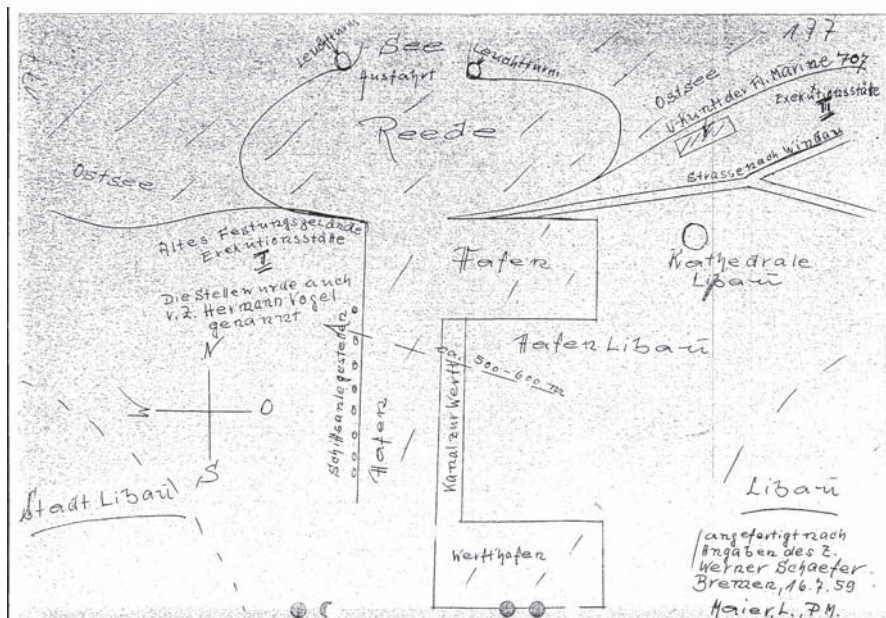 177
177
See
Leuchtturm
Ausfahrt
Leuchtturm
Reede
Ostsee
U-kunft der Fl. Marine 707
Exekutionsstätte
II
Strasse nach Windau
Ostsee
Altes Festungsgelände
Exekutionsstätte
I
Die Stelle wurde auch
v. Z. Hermann Vogel
genannt
Hafen
Kathedrale
Libau
Hafen Libau
ca. 500-600 m
N
W
O
S
Schiffsanlegestellen
Hafen
Kanal zur Werft
Stadt Libau
Werfthafen
Libau
angefertigt nach
Angaben des Z.
Werner Schaefer.
Bremen, 16.7.59
Maier, L., P.M.